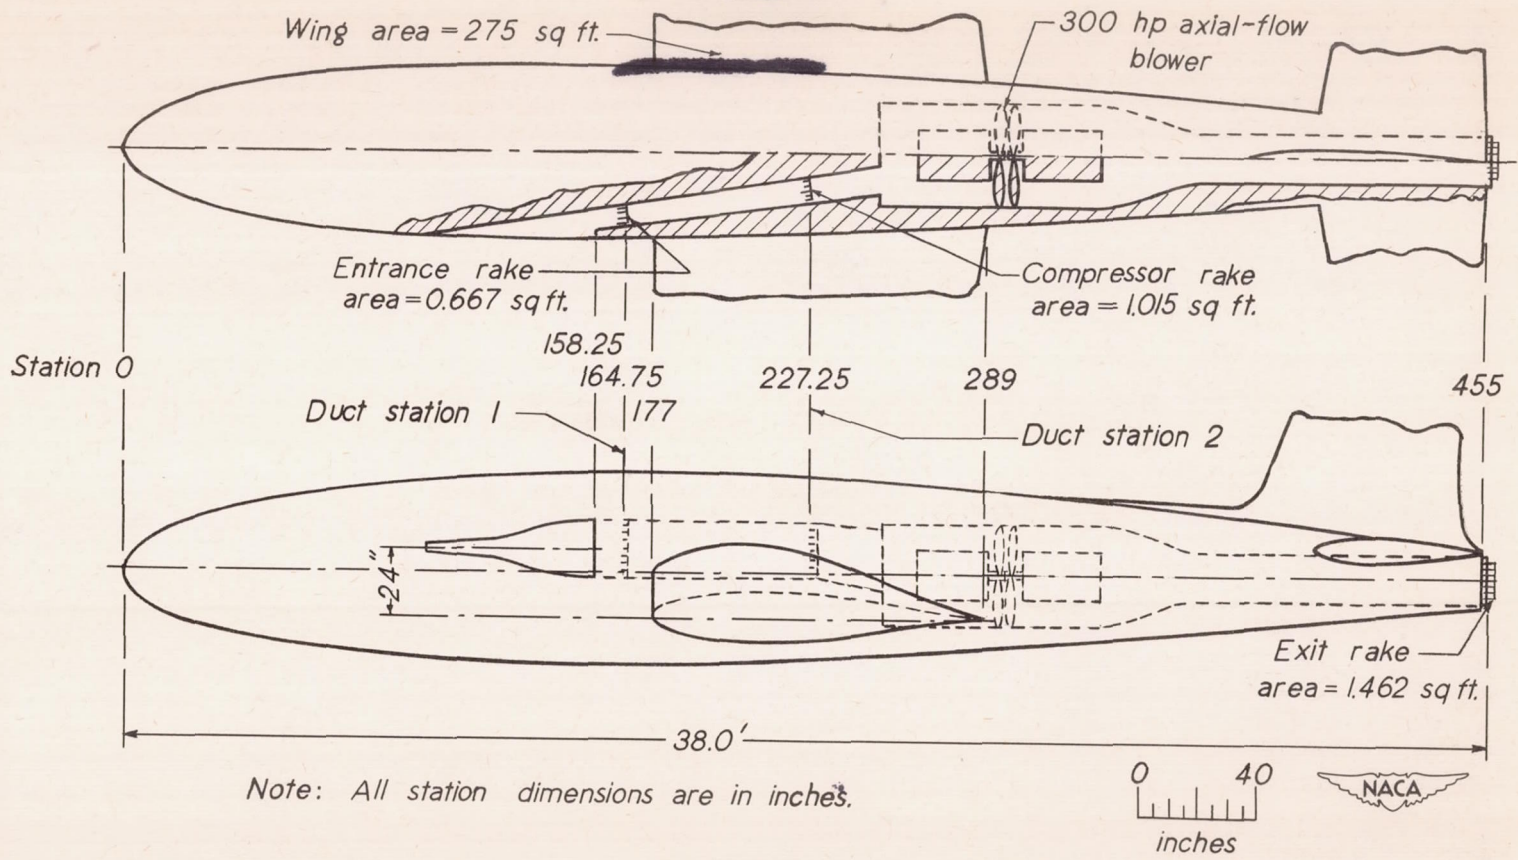 Wing area = 275 sq ft.
300 hp axial-flow
blower
Entrance rake
area = 0.667 sq ft.
Compressor rake
area = 1.015 sq ft.
158.25
Station 0
164.75
227.25
289
455
Duct station 1
177
Duct station 2
24"
Exit rake
area = 1.462 sq ft.
38.0'
Note: All station dimensions are in inches.
0 40
inches
NACA